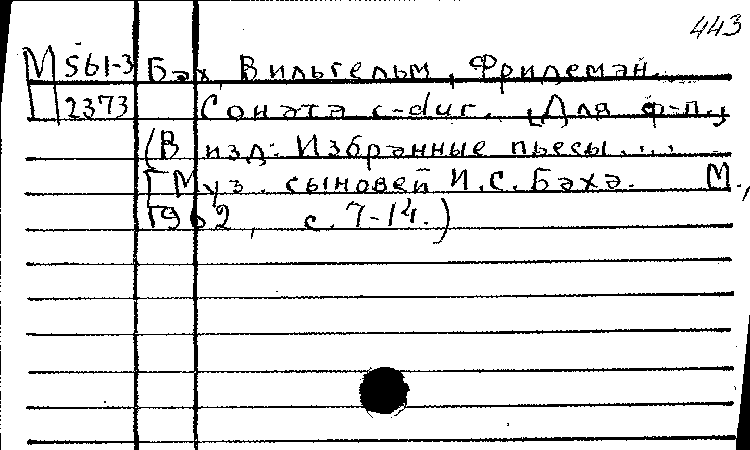 443
М 561-3 Бах, Вильгельм, Фридеман.
2373 Соната c-dur. [Для ф-п.]
(В изд: Избранные пьесы...
Муз. сыновей И.С. Баха. М.,
1962, с. 7-14.)